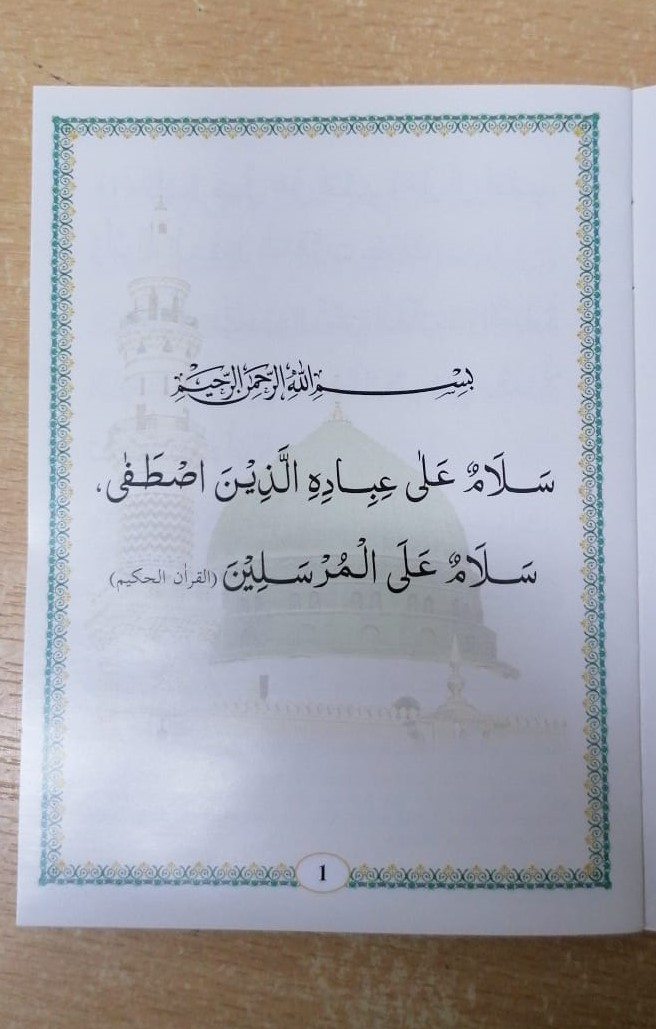 بِسْمِ اللهِ الرَّحْمٰنِ الرَّحِيْمِ
سَلَامٌ عَلٰى عِبِادِهِ الَّذِيْنَ اصْطَفٰى،
سَلَامٌ عَلَى الْمُرْسَلِيْنَ (القرأن الحكيم)
1